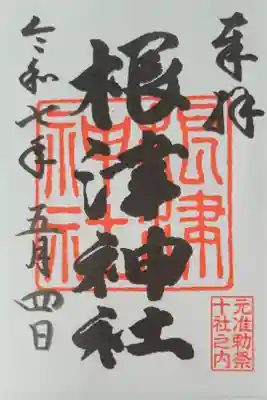 奉拝
根津神社
根津神社
元准勅祭
十社之内
令和七年 五月四日